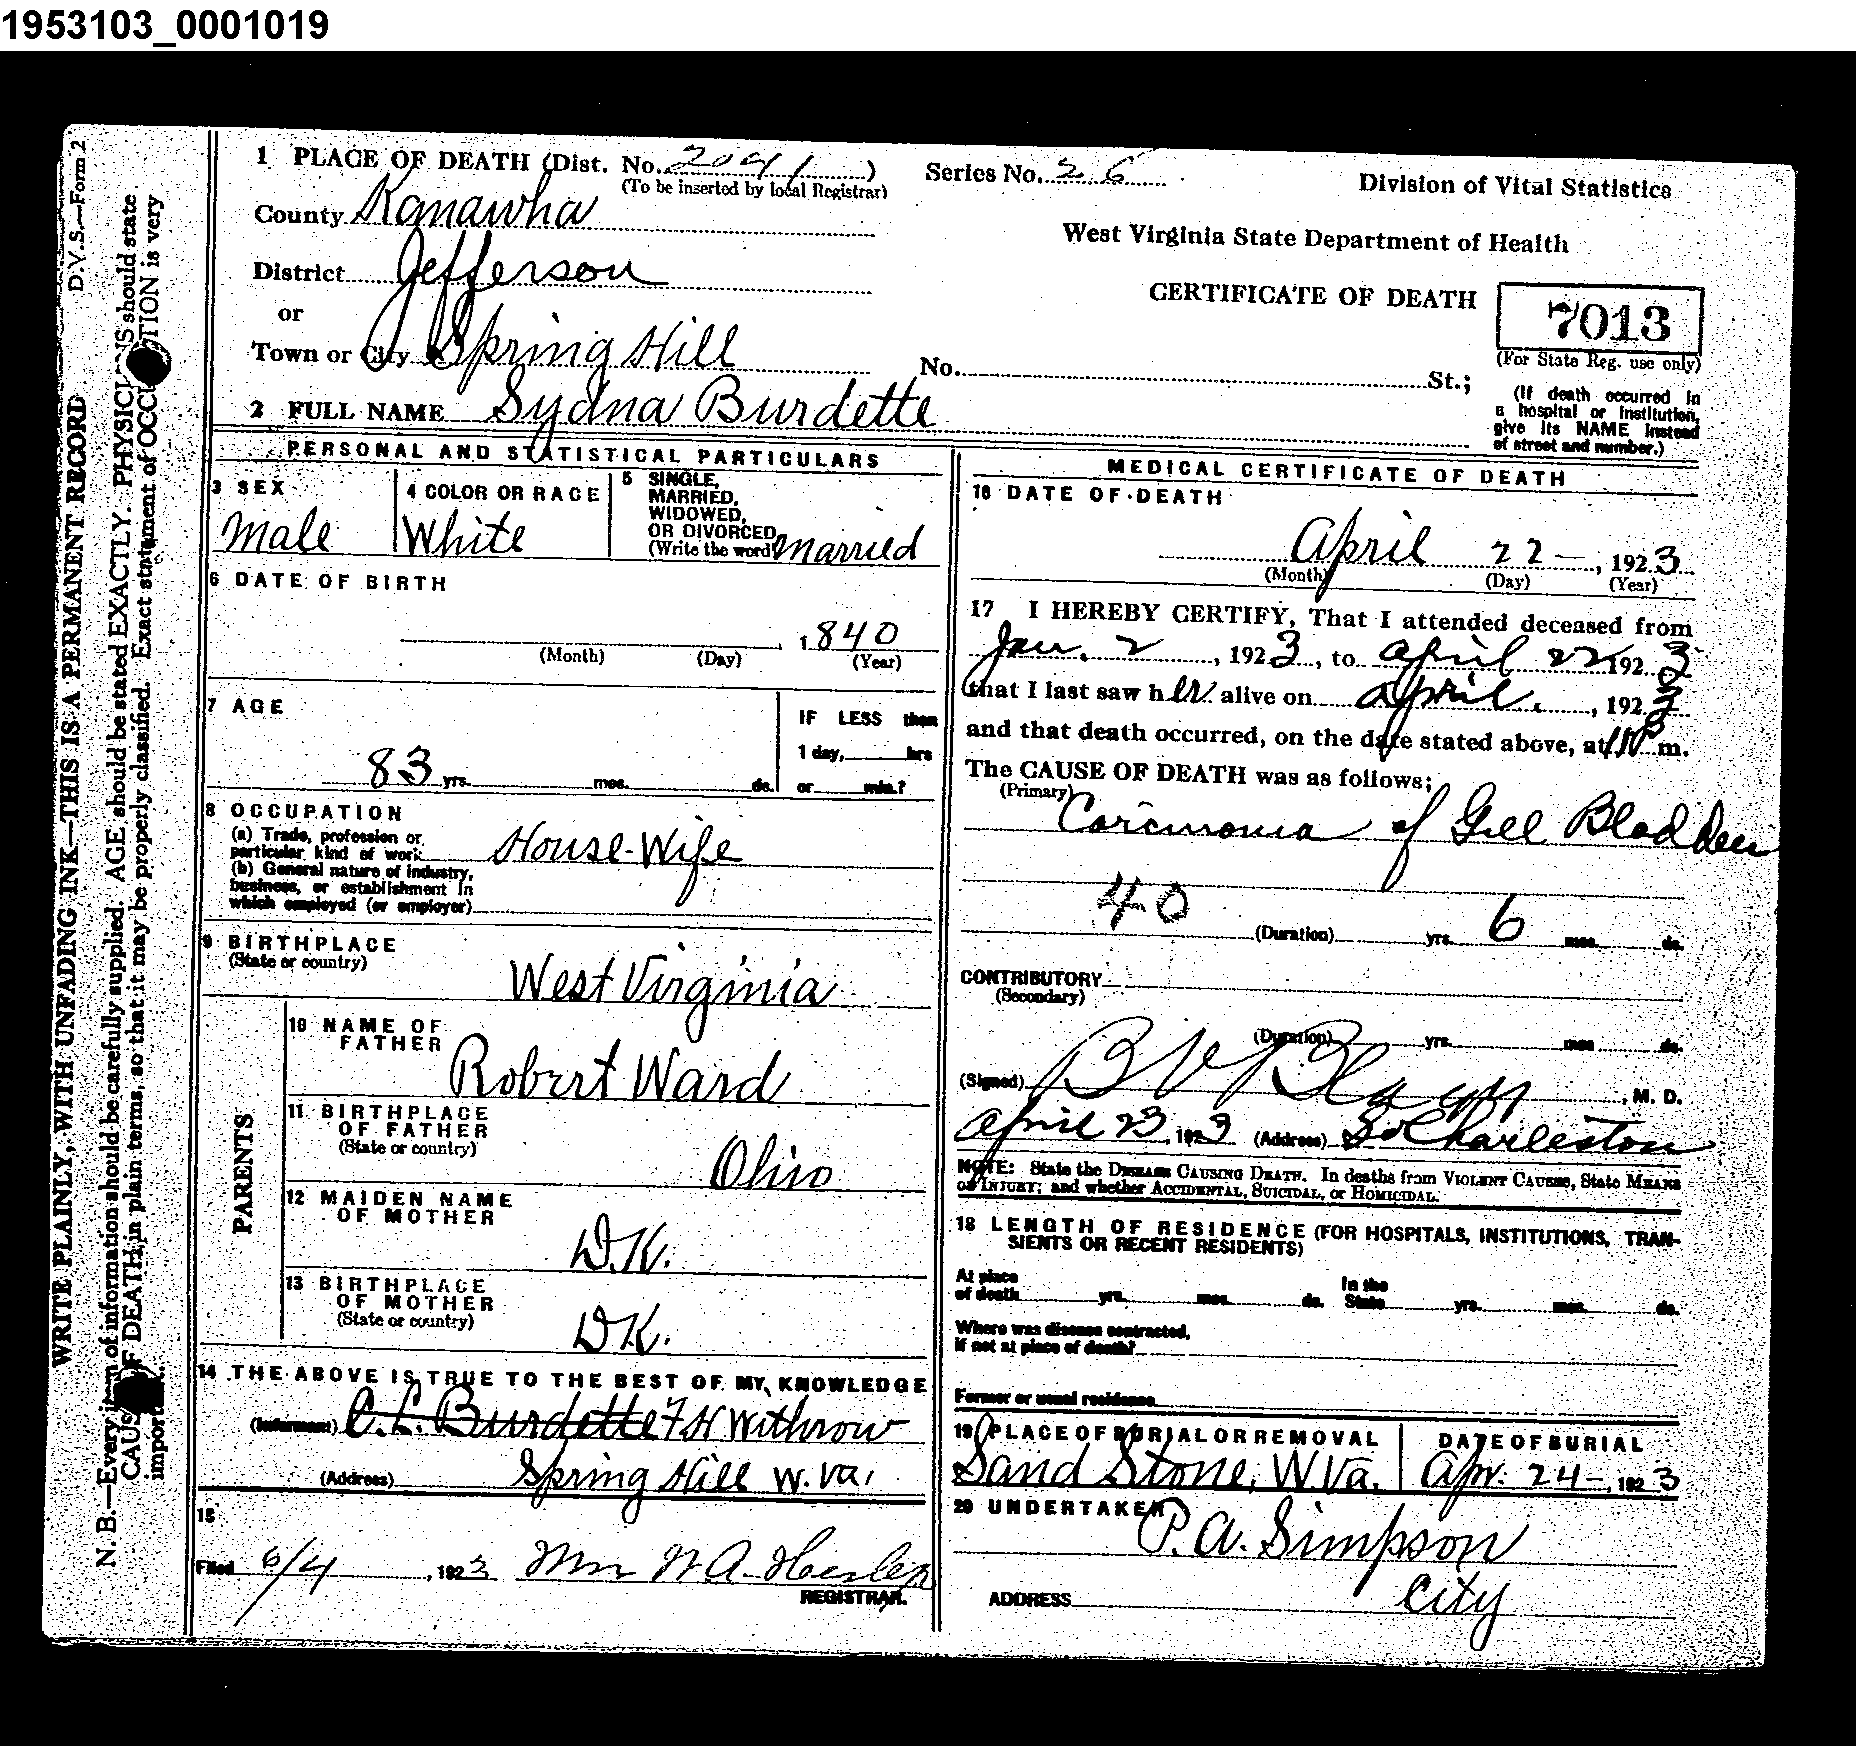 1953103_0001019
D.V.S.—Form 2
WRITE PLAINLY, WITH UNFADING INK—THIS IS A PERMANENT RECORD
N. B.—Every item of information should be carefully supplied. AGE should be stated EXACTLY. PHYSICIANS should state
CAUSE OF DEATH in plain terms, so that it may be properly classified. Exact statement of OCCUPATION is very
important.
1 PLACE OF DEATH (Dist. No. 2041)
(To be inserted by local Registrar)
County Kanawha
District Jefferson
or
Town or City Spring Hill
2 FULL NAME Sydna Burdette
Series No. 26
Division of Vital Statistics
West Virginia State Department of Health
CERTIFICATE OF DEATH
7013
(For State Reg. use only)
No. St.;
(If death occurred in
a hospital or institution,
give its NAME instead
of street and number.)
PERSONAL AND STATISTICAL PARTICULARS
3 SEX
Male
4 COLOR OR RACE
White
5 SINGLE,
MARRIED,
WIDOWED,
OR DIVORCED
(Write the word) Married
6 DATE OF BIRTH
1840
(Month) (Day) (Year)
7 AGE
83 yrs. mos. ds.
IF LESS than
1 day, hrs
or min.?
8 OCCUPATION
(a) Trade, profession or
particular kind of work House-Wife
(b) General nature of industry,
business, or establishment in
which employed (or employer)
9 BIRTHPLACE
(State or country)
West Virginia
PARENTS
10 NAME OF
FATHER
Robert Ward
11 BIRTHPLACE
OF FATHER
(State or country)
Ohio
12 MAIDEN NAME
OF MOTHER
D.K.
13 BIRTHPLACE
OF MOTHER
(State or country)
D.K.
14 THE ABOVE IS TRUE TO THE BEST OF MY KNOWLEDGE
(Informant) C.L. Burdette F H Withrow
(Address) Spring Hill W.Va.
15
Filed 6/4, 1923 W A
REGISTRAR.
MEDICAL CERTIFICATE OF DEATH
16 DATE OF DEATH
April 22—, 1923
(Month) (Day) (Year)
17 I HEREBY CERTIFY, That I attended deceased from
Jan. 2, 1923, to April 22 1923
that I last saw her alive on April, 1923
and that death occurred, on the date stated above, at m.
The CAUSE OF DEATH was as follows:
(Primary)
Carcinonia of Gall Bladder
40
(Duration) yrs. 6 mos. ds.
CONTRIBUTORY
(Secondary)
(Duration) yrs. mos. ds.
(Signed) B V , M. D.
April 23, 1923 (Address) So Charleston
NOTE: State the DISEASE CAUSING DEATH. In deaths from VIOLENT CAUSES, State MEANS
OF INJURY; and whether ACCIDENTAL, SUICIDAL, or HOMICIDAL.
18 LENGTH OF RESIDENCE (FOR HOSPITALS, INSTITUTIONS, TRAN-
SIENTS OR RECENT RESIDENTS)
At place In the
of death yrs. mos. ds. State yrs. mos. ds.
Where was disease contracted,
if not at place of death?
Former or usual residence
19 PLACE OF BURIAL OR REMOVAL
Sand Stone, W.Va.
DATE OF BURIAL
Apr. 24—, 1923
20 UNDERTAKER
P.A. Simpson
ADDRESS City